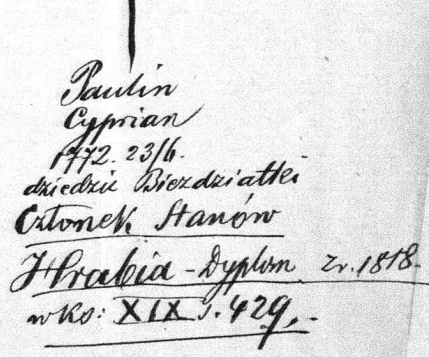 Paulin
Cyprian
1772. 23/6.
dziedzic Bieździatki
Członek Stanów
Hrabia - Dyplom z r. 1818.
w ks: XIX s. 429.